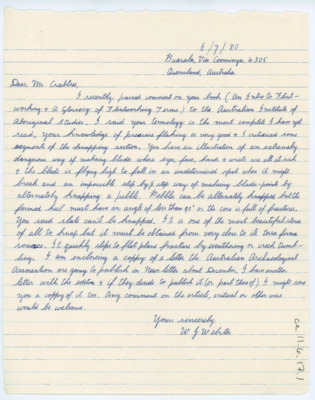 6/7/80
Via Coominya 4305
Queensland, Australia
Dear Mr. Crabtree,
I recently passed comment on your book (An Intro to Flint-
working & A Glossary of Flintworking Terms) to the Australian Institute of
Aboriginal Studies. I said your terminology is the most complete I have yet
read, your knowledge of pressure flaking is very good & I criticised some
segment of the knapping section. You have an illustration of an extremely
dangerous way of making blades where eyes, face, hand & wrists are all at risk
& the blade is flying high to fall in an undetermined spot where it might
break and an impossible step by step way of making blade points by
alternately knapping a pebble. Pebbles can be alternately knapped but the
formed keel must have an angle of less than 90° or the core is full of fracture.
You said slate can't be knapped, it is one of the most beautiful stones
of all to knap but it must be obtained from very close to its
sources. It quickly slips to flat plane fracture by weathering or creek tumb-
ling. I am enclosing a coppy of a letter the Australian Archaeological
Association are going to publish in News letter about December. I have another
letter with the editor & if they decide to publish it (or part there of) I might send
you a coppy of it too. Any comment on the article, critical or other wise
would be welcome.
Yours sincerely
W J Webster